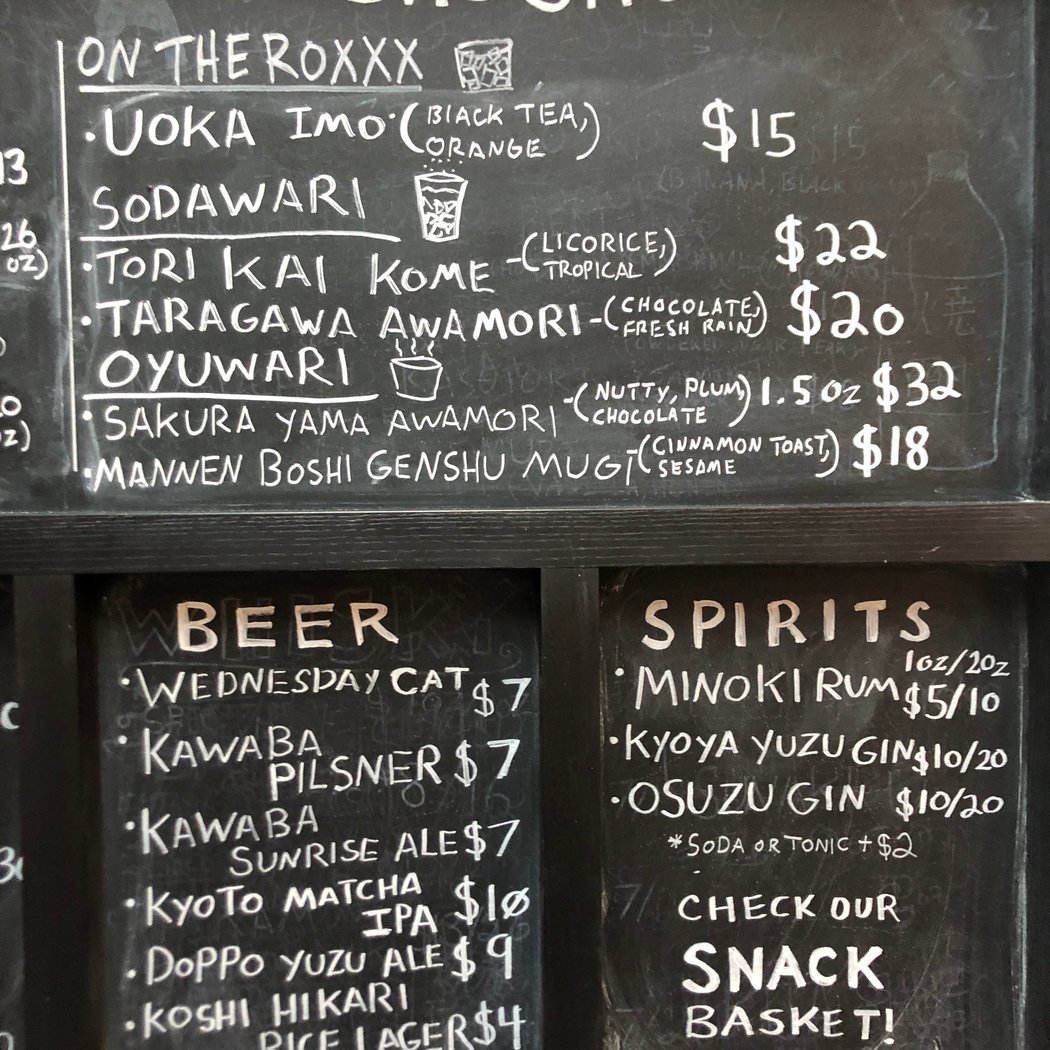 ON THE ROXXX
·UOKA IMO·(BLACK TEA, ORANGE) $15
SODAWARI
·TORI KAI KOME-(LICORICE, TROPICAL) $22
·TARAGAWA AWAMORI-(CHOCOLATE, FRESH RAIN) $20
OYUWARI
·SAKURA YAMA AWAMORI-(NUTTY, PLUM, CHOCOLATE) 1.5 oz $32
·MANNEN BOSHI GENSHU MUGI-(CINNAMON TOAST, SESAME) $18
13
26
oz)
BEER
·WEDNESDAY CAT $7
·KAWABA
PILSNER $7
·KAWABA
SUNRISE ALE $7
·KYOTO MATCHA
IPA $10
·DOPPO YUZU ALE $9
·KOSHI HIKARI
RICE LAGER $4
SPIRITS
1oz/2oz
·MINOKI RUM $5/10
·KYOYA YUZU GIN $10/20
·OSUZU GIN $10/20
*SODA OR TONIC +$2
CHECK OUR
SNACK
BASKET!